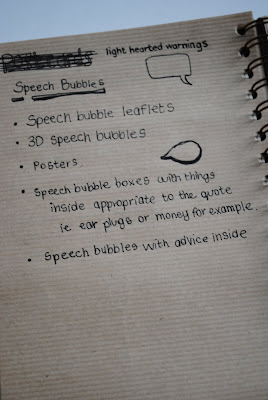 light hearted warnings
Speech Bubbles
• Speech bubble leaflets
• 3D speech bubbles
• Posters
• Speech bubble boxes with things
inside appropriate to the quote
ie ear plugs or money for example.
• Speech bubbles with advice inside